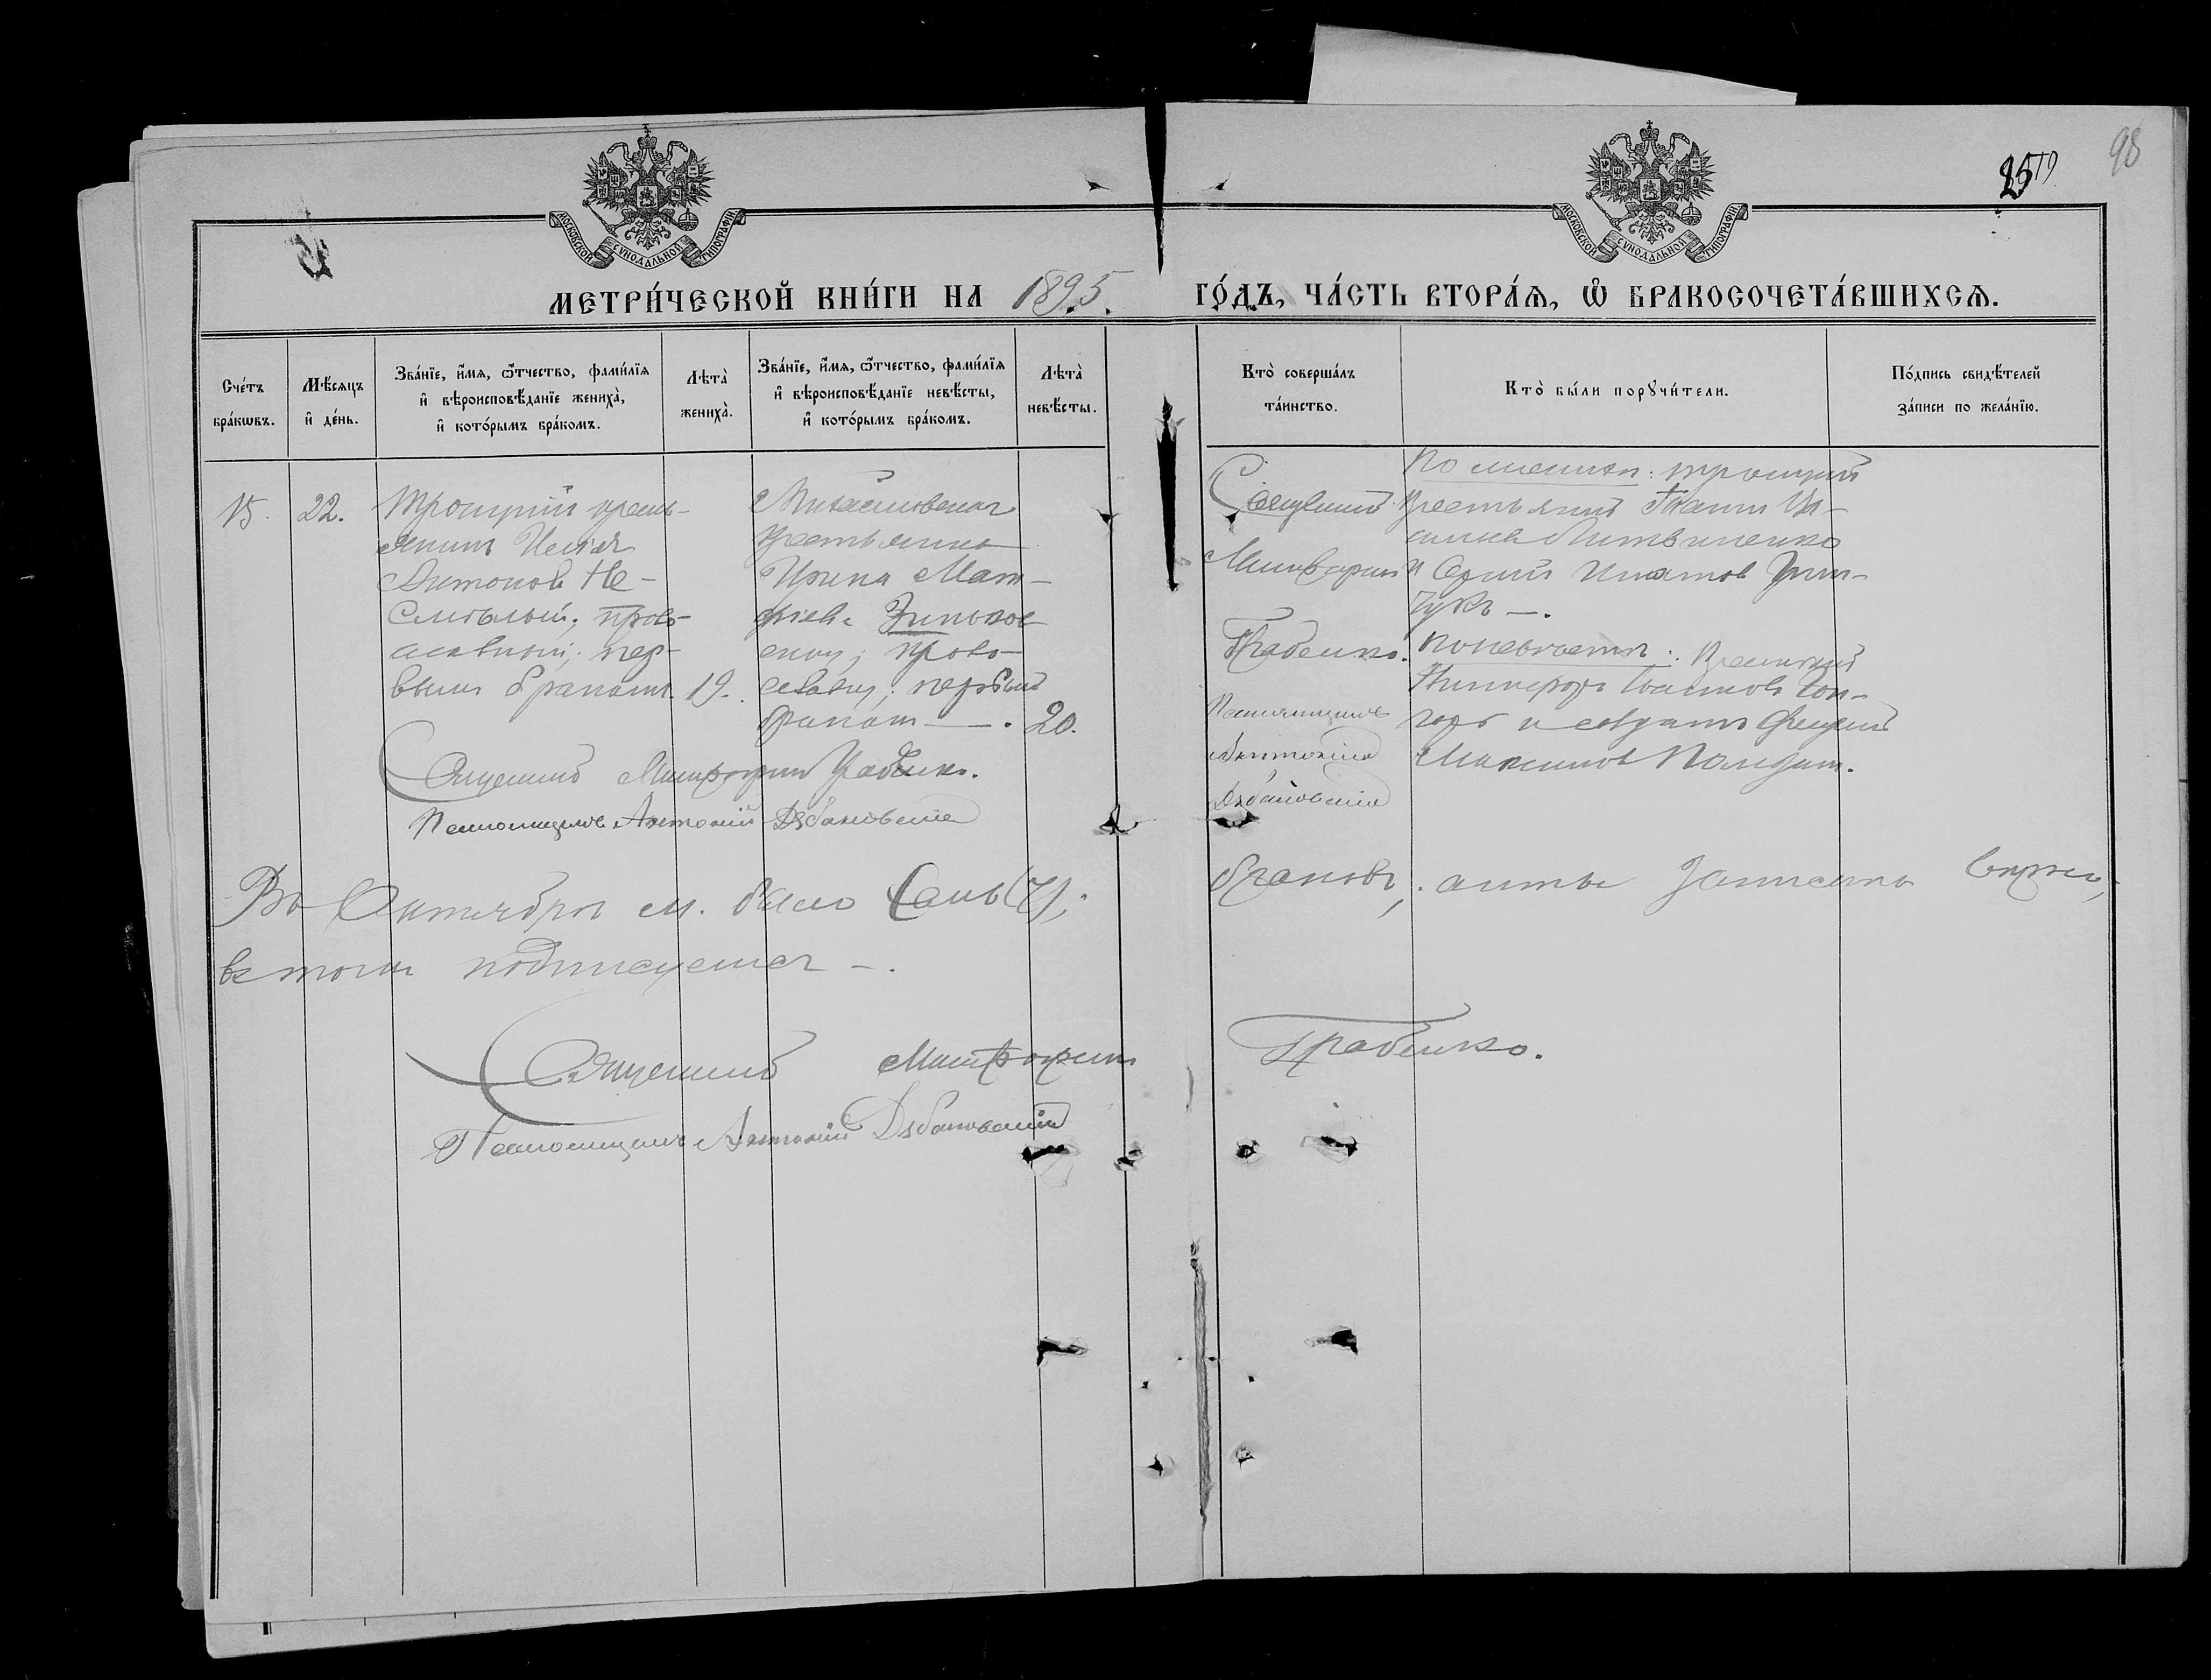 98
25 19
МОСКОВСКОЙ СѴНОДАЛЬНОЙ ТИПОГРАФІИ.
МОСКОВСКОЙ СѴНОДАЛЬНОЙ ТИПОГРАФІИ.
МЕТРИ́ЧЕСКОЙ КНИ́ГИ НА 1895. ГО́ДЪ, ЧА́СТЬ ВТОРА́Ѧ, Ѽ БРАКОСОЧЕТА́ВШИХСѦ.
Сче́тъ
бра́кѡвъ.
Мѣ́сѧцъ
и҆ де́нь.
Зва́нїе, и҆́мѧ, ѻ҆́тчество, фами́лїѧ
и҆ вѣроисповѣ́данїе жениха̀,
и҆ кото́рымъ бра́комъ.
Лѣта̀
жениха̀.
Зва́нїе, и҆́мѧ, ѻ҆́тчество, фами́лїѧ
и҆ вѣроисповѣ́данїе невѣ́сты,
и҆ кото́рымъ бра́комъ.
Лѣта̀
невѣ́сты.
Кто̀ соверша́лъ
та́инство.
Кто̀ бы́ли порꙋчи́тели.
По́дпись свидѣ́телей
за́писи по жела́нїю.
15.
22.
Троицкій кресть-
янинъ Илія
Антоновъ Не-
смѣлый; право-
славный; пер-
вымъ бракомъ.
19.
Михайловская
крестьянка
Ирина Мат-
фіева Зиньков-
ская; право-
славная; первымъ
бракомъ —.
20.
Священникъ
Митрофанъ
Грабенко.
Псаломщикъ
Антоній
Дзбановскій
По женихѣ: троицкій
крестьянинъ
Литвиненко
и Сергій Игнатов
чукъ —.
По невѣстѣ:
Никифоръ
и солдатъ
Максимовъ
Священникъ Митрофанъ Грабенко.
Псаломщикъ Антоній Дзбановскій
Въ Октябрѣ м. было семь (7) браковъ; акты записаны вѣрно,
въ томъ подписуемся —.
Священникъ Митрофанъ Грабенко.
Псаломщикъ Антоній Дзбановскій